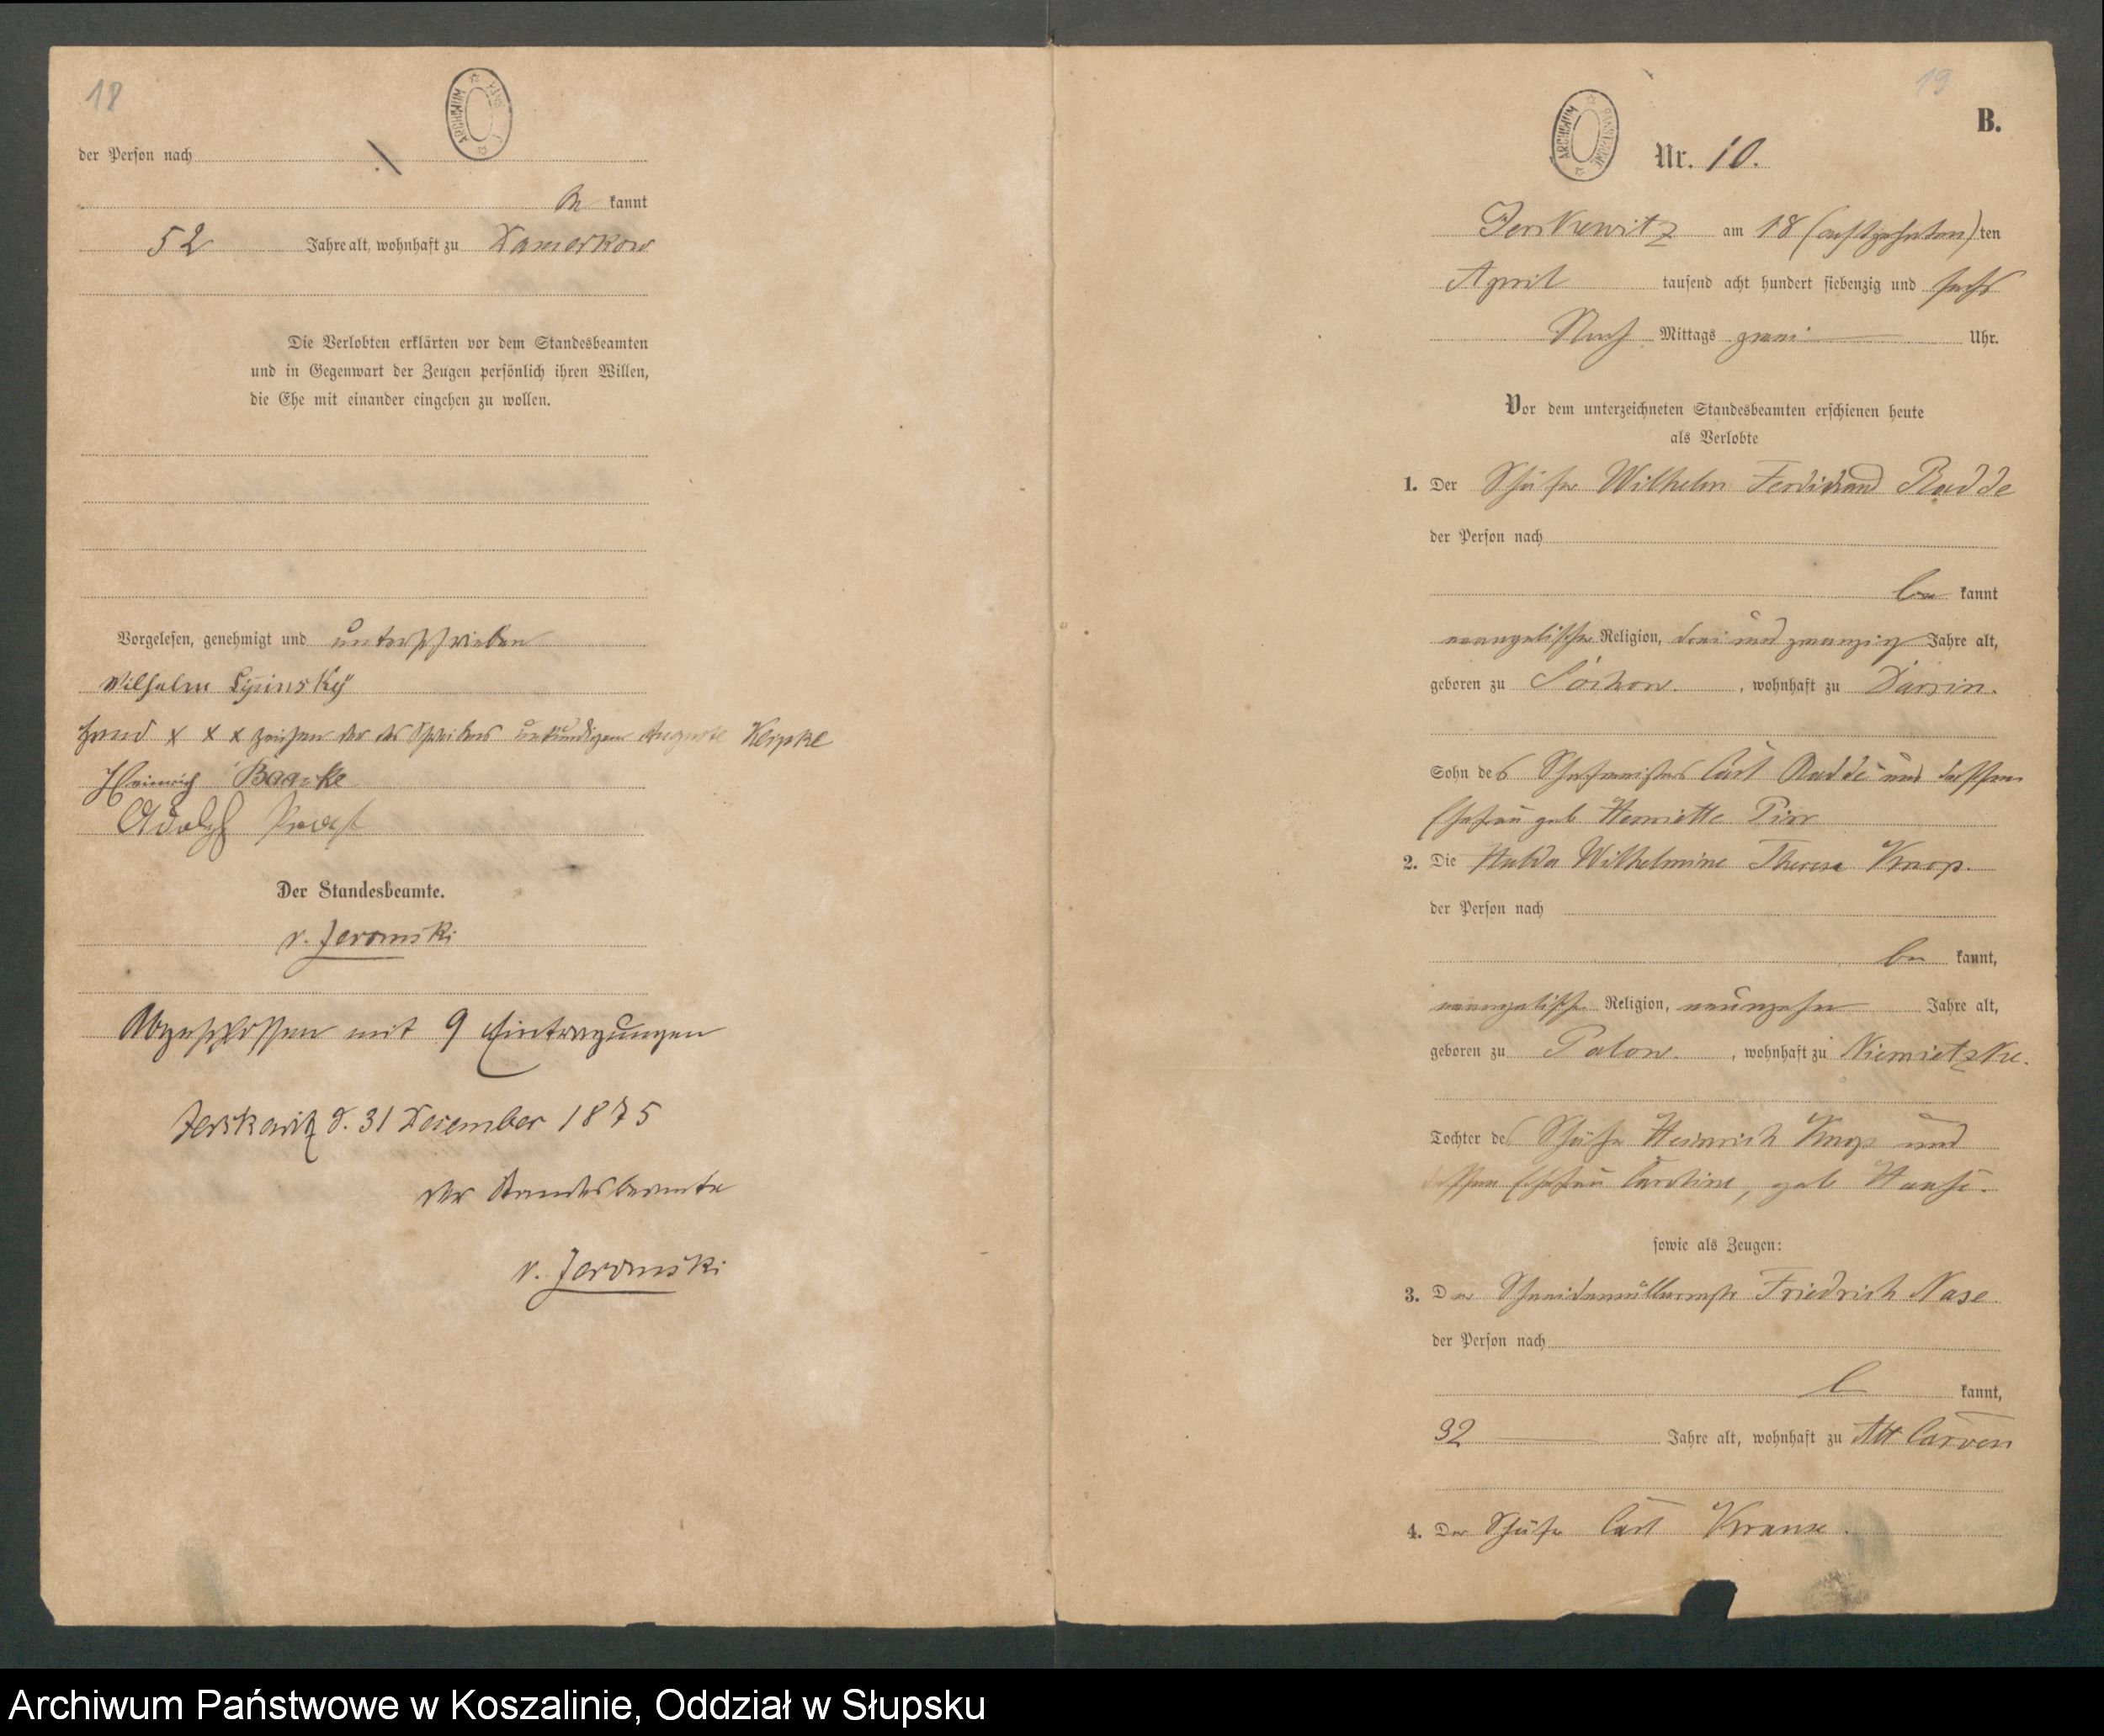 18
ARCHIWUM
der Person nach
be kannt
52 Jahre alt, wohnhaft zu Damerkow
Die Verlobten erklärten vor dem Standesbeamten
und in Gegenwart der Zeugen persönlich ihren Willen,
die Ehe mit einander eingehen zu wollen.
Vorgelesen, genehmigt und unterschrieben
Wilhelm Lipinsky
Hand x x x zeichen der des Schreibens unkundigen Auguste Keipke
Heinrich Baaske
Adolph
Der Standesbeamte.
v. Jeromski
Abgeschlossen mit 9 Eintragungen
Jerskewitz d. 31 Dezember 1875
der Standesbeamte
v. Jeromski
19
B.
ARCHIWUM
Nr. 10.
Jerskewitz am 18 (achtzehnten) ten
April tausend acht hundert siebenzig und sechs
Nach Mittags zwei Uhr.
Vor dem unterzeichneten Standesbeamten erschienen heute
als Verlobte
1. Der Schäfer Wilhelm Ferdinand Radde
der Person nach
be kannt
evangelischer Religion, drei und zwanzig Jahre alt,
geboren zu , wohnhaft zu Darsin.
Sohn des Schafmeisters Carl Radde und dessen
Ehefrau geb Henriette Pirr
2. Die Hulda Wilhelmine Therese Knop.
der Person nach
be kannt,
evangelischer Religion, neunzehn Jahre alt,
geboren zu Palow. , wohnhaft zu Niemietzke.
Tochter des Schäfer Heinrich Knop und
dessen Ehefrau Caroline, geb
sowie als Zeugen:
3. Der Schneidemüllermstr Friedrich Nase
der Person nach
be kannt,
32 Jahre alt, wohnhaft zu Alt Carven
4. Der Schäfer Carl Krause
Archiwum Państwowe w Koszalinie, Oddział w Słupsku